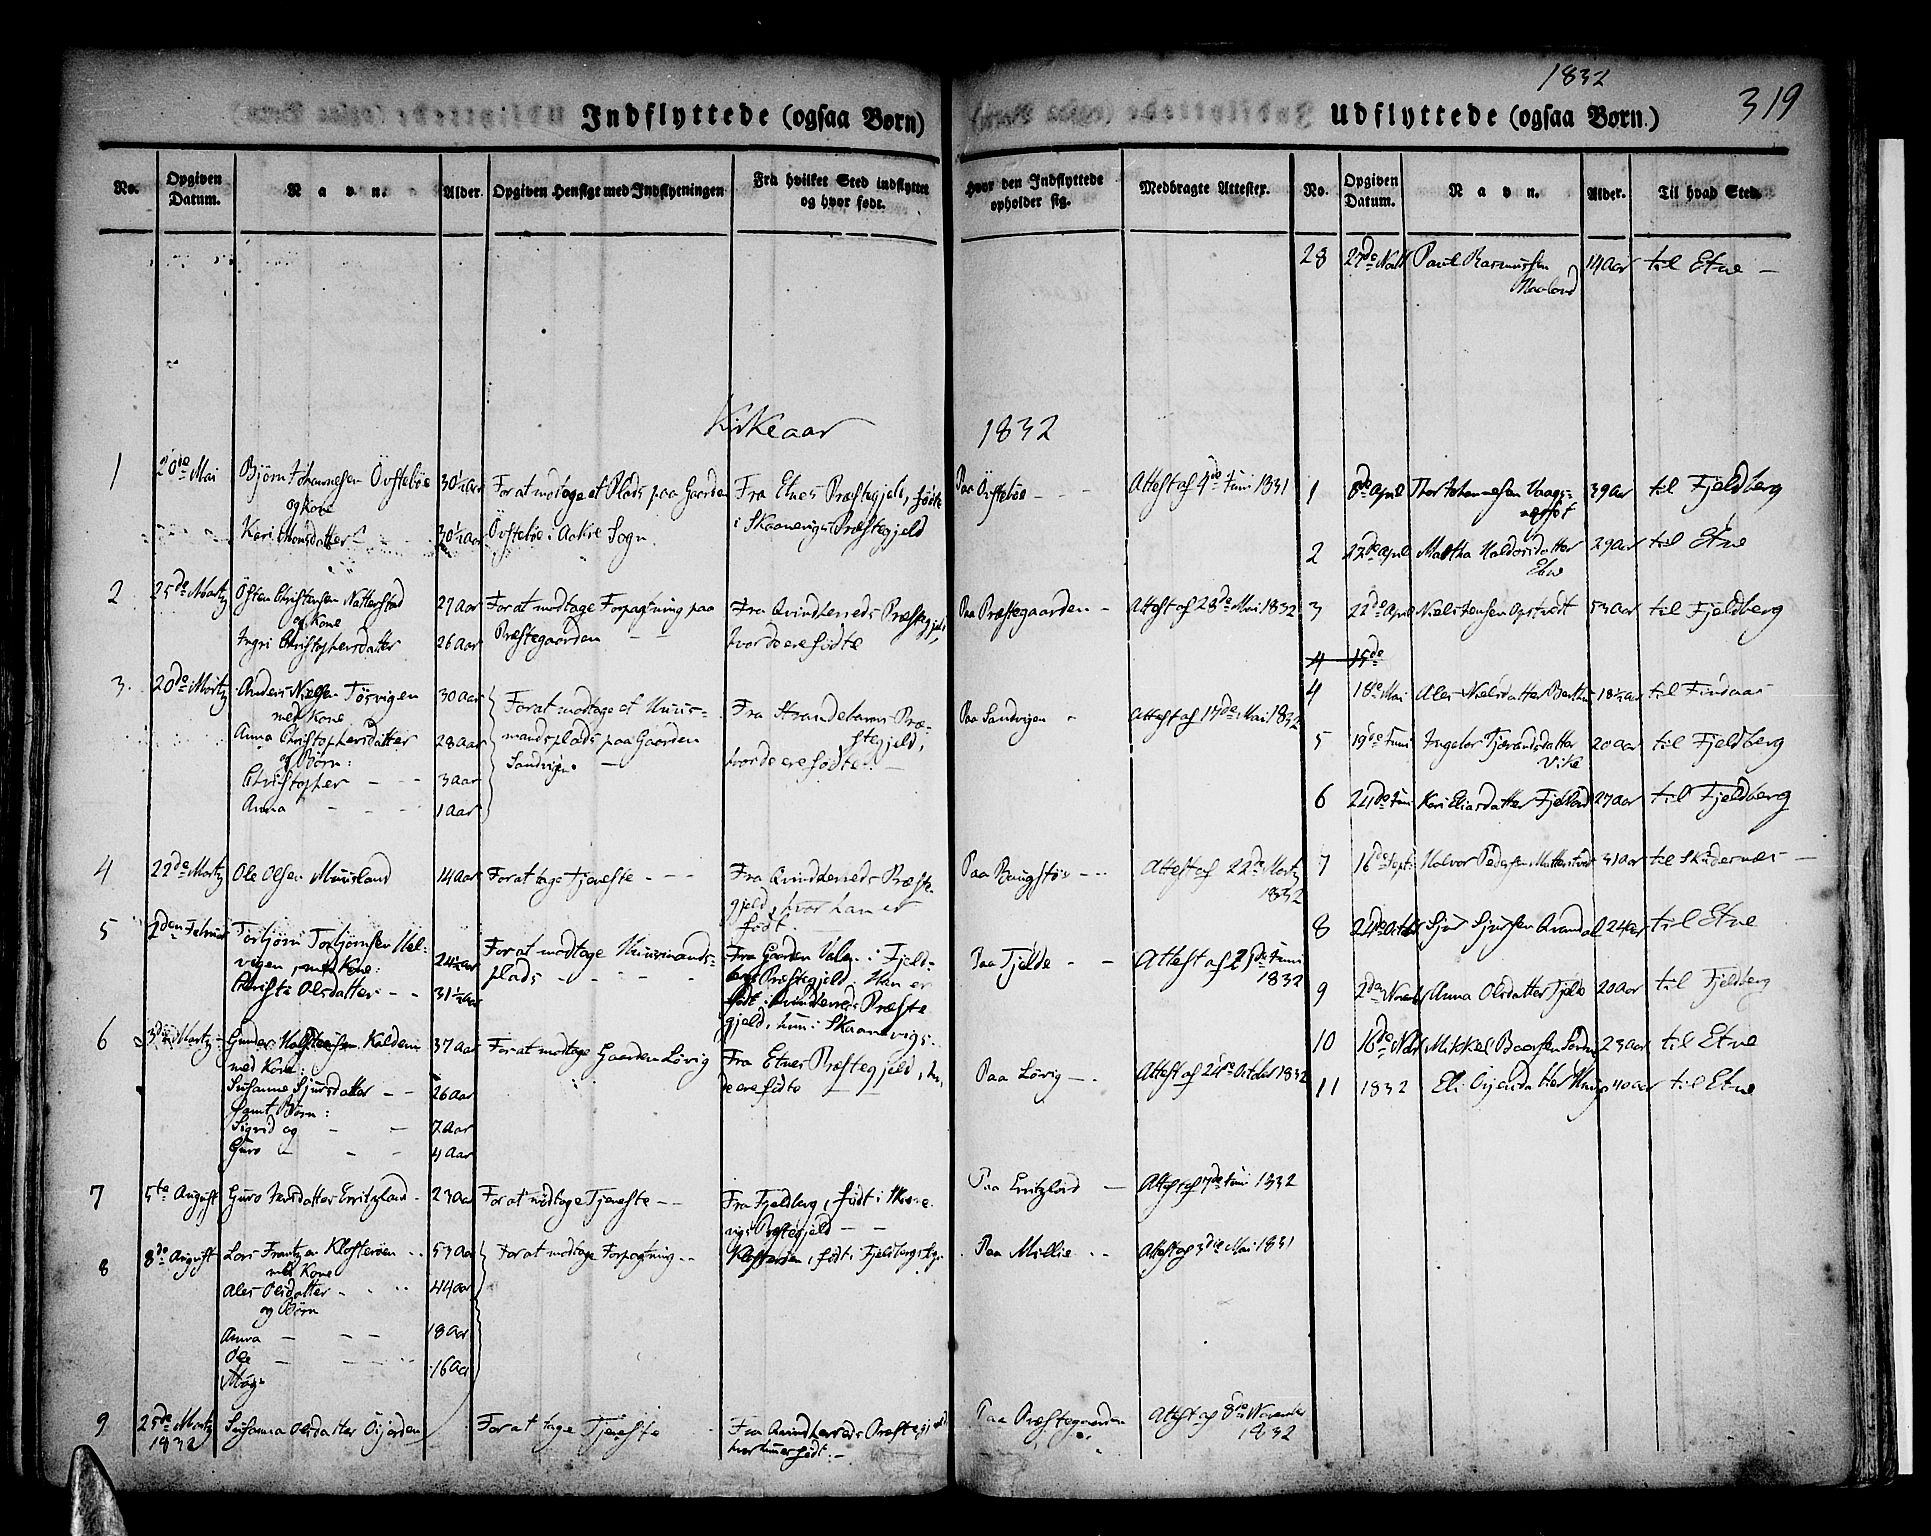 1832
319
Indflyttede (ogsaa Børn)
Udflyttede (ogsaa Børn.)
No.
Opgiven Datum.
Navn.
Alder.
Opgiven Hensigt med Indflytningen
Fra hvilket Sted indflyttet og hvor født.
Hvor den Indflyttede opholder sig.
Medbragte Attester.
No.
Opgiven Datum.
Navn.
Alder.
Til hvad Sted.
28 27de Paul Rasmussen 14 Aar til Etne —
Kirkeaar 1832
1 20de Mai Bjørn Johannesen Övstebøe 30½ Aar For at modtage et Plads paa Gaarden Fra Etnes Præstegjeld, fødte Paa Övstebøe - - Attest af 4de Juni 1831
og Kone
Kari 30½ Aar Övstebøe i Aakre Sogn i Skaanevigs Præstegjeld
2 25de Martz Östen Christensen Natterstad 27 Aar For at modtage Forpagtning paa Fra Qvindherreds Præstegjeld, Paa Præstegaarden - Attest af 28de Mai 1832
og Kone
Ingri Christophersdatter 26 Aar Præstegaarden hvor de ere fødte
3. 20de Martz Anders Nielsen Tösvigen 30 Aar For at modtage et Huus- Fra Strandebarms Præ- Paa Sandvigen Attest af 17de Mai 1832
med Kone
Anna Christophersdatter 28 Aar mandsplads paa Gaarden stegjeld,
og Børn:
Christopher - - - 3 Aar Sandvigen hvor de ere fødte. —
Anna 1 Aar
4 22de Martz Ole Olsen Muusland 14 Aar For at tage Tjeneste - - - Fra Qvindherreds Præste- Paa - - Attest af 22de Martz 1832
gjeld, hvor han er
født.
5 2den Februar Torbjørn Torbjørnsen Hel- 24½ Aar For at modtage Huusmands- Fra Gaarden Valen i Fjeld- Paa Tjelde - - Attest af 2den Juni 1832
vigen, med Kone: plads bergs Præstegjeld. Han er
Christi Olsdatter - - 31½ Aar født i Qvindherreds Præste
gjeld, hun i Skaanevigs.
6 3die Martz Gunder 37 Aar For at modtage Gaarden Løvig Fra Etnes Præstegjeld, hvor Paa Løvig — Attest af 24de October 1832
med Kone: de ere fødte
Susanna Sjursdatter - - 26 Aar
Samt Børn:
Sigrid og - - 7 Aar
Guro - - 4 Aar
7 5te August Guro 23 Aar For at modtage Tjeneste - - Fra Fjeldberg, født i Skaane- Paa - Attest af 7de Juni 1832
vigs Præstegjeld — —
8 8de August Lars Frantzen Klosterøen 53 Aar For at modtage Forpagtning - - Klosterøen, født i Fjeldbergs Paa Millie - - Attest af 3die Mai 1831
med Kone
Ales Olsdatter 44 Aar
og Børn
Anna - - - 18 Aar
Ole - 16 Aar
9 25de Martz 1832 Susanna Olsdatter For at tage Tjeneste Fra Qvindherreds Præstegjeld Paa Præstegaarden Attest af 8de November 1832
hvor hun er født: -
1 8de April Thor Johannesen 39 Aar til Fjeldberg
2 22de April Martha Haldorsdatter 29 Aar til Etne
3 22de April Niels Jensen Opstvedt 53 Aar til Fjeldberg
4 15de
4 18de Mai Ales Nielsdatter 18½ Aar til Findaas
5 19de Juni Ingebor Tjerandsdatter 20 Aar til Fjeldberg
Vike
6 24de Juni Kari Eliasdatter 27 Aar til Fjeldberg
7 16de Sept. Halvor Pedersen 31 Aar til Skudesnæs —
8 24de Sjur Sjursen 24 Aar til Etne
9 2den Anna Olsdatter Tjelde 20 Aar til Fjeldberg
10 16de Mikkel 23 Aar til Etne
11 1832 Eli 40 Aar til Etne